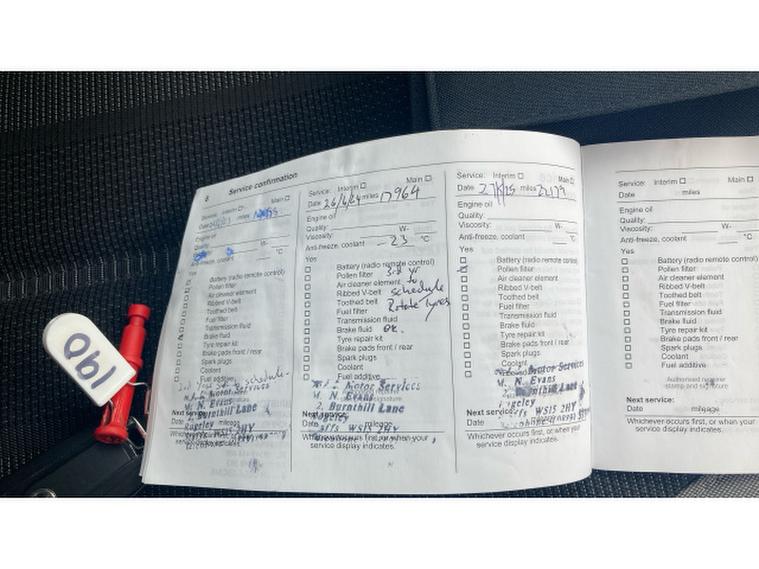 8 Service confirmation
Service: Interim ☐ Main ☐
Date miles
Engine oil
Quality:
Viscosity: W-
Anti-freeze, coolant °C
Yes
☐ Battery (radio remote control)
☐ Pollen filter
☐ Air cleaner element
☐ Ribbed V-belt
☐ Toothed belt
☐ Fuel filter
☐ Transmission fluid
☐ Brake fluid
☐ Tyre repair kit
☐ Brake pads front / rear
☐ Spark plugs
☐ Coolant
☐ Fuel additive
schedule.
Motor Services
M. N. Evans
2, Burnthill Lane
Rugeley
Staffs WS15 2HY
Next service:
Date mileage
Whichever occurs first, or when your
service display indicates.
Service: Interim ☐ Main ☐
Date 26/6/24 miles 17964
Engine oil
Quality:
Viscosity: W-
Anti-freeze, coolant -23 °C
Yes
☐ Battery (radio remote control)
☐ Pollen filter 3rd yr
☐ Air cleaner element to
☐ Ribbed V-belt schedule
☐ Toothed belt Rotate Tyres
☐ Fuel filter
☐ Transmission fluid
☐ Brake fluid OK.
☐ Tyre repair kit
☐ Brake pads front / rear
☐ Spark plugs
☐ Coolant
☐ Fuel additive
Motor Services
M. N. Evans
2, Burnthill Lane
Rugeley
Staffs WS15 2HY
Next service:
Whichever occurs first, or when your
service display indicates.
Service: Interim ☐ Main ☐
Date miles
Engine oil
Quality:
Viscosity: W-
Anti-freeze, coolant °C
Yes
☐ Battery (radio remote control)
☐ Pollen filter
☐ Air cleaner element
☐ Ribbed V-belt
☐ Toothed belt
☐ Fuel filter
☐ Transmission fluid
☐ Brake fluid
☐ Tyre repair kit
☐ Brake pads front / rear
☐ Spark plugs
☐ Coolant
Motor Services
M. N. Evans
Burnthill Lane
Rugeley
Staffs WS15 2HY
Next service:
Date
Whichever occurs first, or when your
service display indicates.
Service: Interim ☐ Main ☐
Date miles
Engine oil
Quality:
Viscosity: W-
Anti-freeze, coolant °C
Yes
☐ Battery (radio remote control)
☐ Pollen filter
☐ Air cleaner element
☐ Ribbed V-belt
☐ Toothed belt
☐ Fuel filter
☐ Transmission fluid
☐ Brake fluid
☐ Tyre repair kit
☐ Brake pads front / rear
☐ Spark plugs
☐ Coolant
☐ Fuel additive
Authorised repairer
stamp and signature
Next service:
Date mileage
Whichever occurs first, or when your
service display indicates.